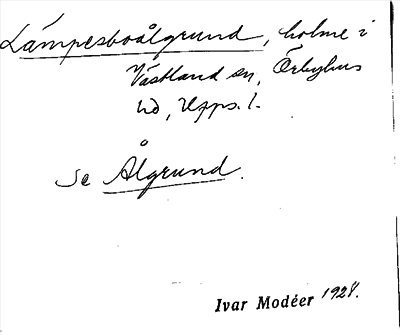 Lämpesboålgrund, holme i
Västland sn, Örbyhus
hd, Upps. l.
se Ålgrund.
Ivar Modéer 1928.